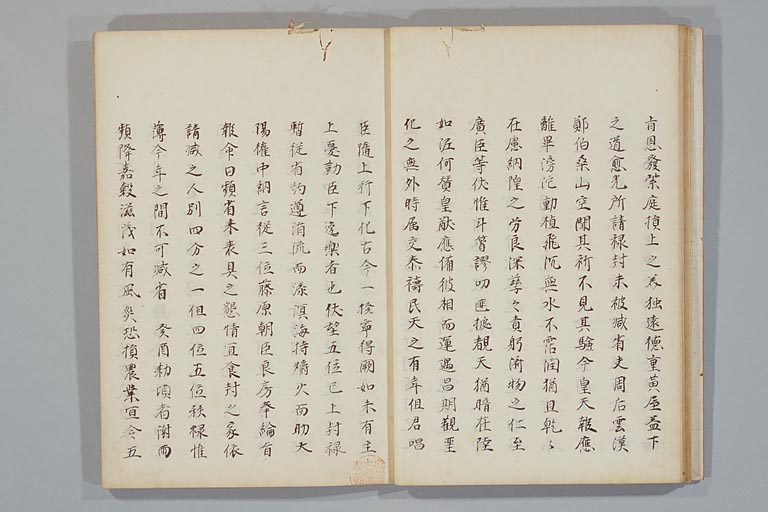 肯恩發紫庭損上之美独遠德重黄屋益下
之道愈光所請禄封未被减省夫周后雲漢
鄭伯桑山空聞其祈不見其驗今皇天報應
離畢滂沱動植飛沉無水不霑潤猶且乾々
在慮納隍之労良深孳々責躬済物之仁至
廣臣等伏惟斗筲謬叨匪據覩天猶暗在陸
如江何賛皇猷應備彼相而運遇昌期觀聖
化之無外時属交泰禱民天之有年但君唱
臣随上行下化古今一揆寧得闕如未有主
上憂勤臣下逸樂者也伏望五位已上封禄
暫従省約遵涓流而添溟海持爝火而助大
陽権中納言従三位藤原朝臣良房奉綸旨
報命曰頻省来表具之懇情宜食封之家依
請减之人別四分之一但四位五位秩禄惟
薄今年之間不可减省癸酉勅頃者澍雨
頻降嘉穀滋茂如有風災恐損農業宜令五